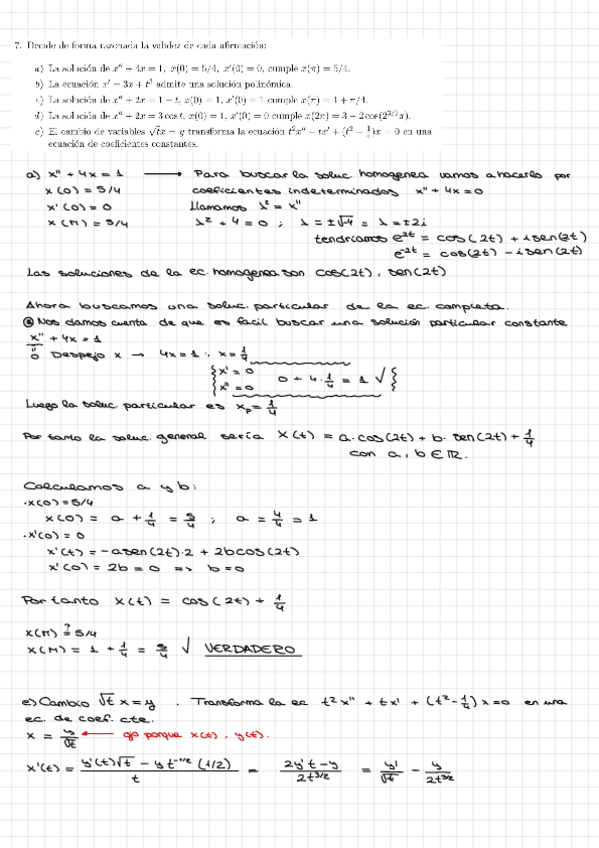 7. Decide de forma razonada la validez de cada afirmación:
a) La solución de x'' + 4x = 1, x(0) = 5/4, x'(0) = 0, cumple x(π) = 5/4.
b) La ecuación x' − 3x + t³ admite una solución polinómica.
c) La solución de x'' + 2x = 1 − t, x(0) = 1, x'(0) = 1 cumple x(π) = 1 + π/4.
d) La solución de x'' + 2x = 3 cos t, x(0) = 1, x'(0) = 0 cumple x(2π) = 3 − 2 cos(2^{3/2}π).
e) El cambio de variables √t x = y transforma la ecuación t²x'' + tx' + (t² − 1/4)x = 0 en una
ecuación de coeficientes constantes.
a) x'' + 4x = 1 ⟶ Para buscar la soluc homogenea vamos a hacerlo por
x(0) = 5/4 coeficientes indeterminados x'' + 4x = 0
x'(0) = 0 Llamamos λ² = x''
x(π) = 5/4 λ² + 4 = 0 ; λ = ±√-4 = λ = ±2i
tendríamos e^{2t} = cos(2t) + i sen(2t)
e^{-2t} = cos(2t) − i sen(2t)
Las soluciones de la ec. homogenea son cos(2t), sen(2t)
Ahora buscamos una soluc. particular de la ec. completa.
Nos damos cuenta de que es facil buscar una solución particular constante
x'' + 4x = 1
0 Despejo x → 4x = 1 ; x = 1/4
{ x' = 0
x'' = 0 0 + 4 · 1/4 = 1 √ }
Luego la soluc. particular es x_p = 1/4
Por tanto la soluc. general sería x(t) = a·cos(2t) + b·sen(2t) + 1/4
con a, b ∈ ℝ.
Calculamos a y b:
· x(0) = 5/4
x(0) = a + 1/4 = 5/4 ; a = 4/4 = 1
· x'(0) = 0
x'(t) = −a sen(2t)·2 + 2b cos(2t)
x'(0) = 2b = 0 => b = 0
Por tanto x(t) = cos(2t) + 1/4
x(π) ?= 5/4
x(π) = 1 + 1/4 = 5/4 √ VERDADERO
e) Cambio √t x = y . Transforma la ec t²x'' + tx' + (t² − 1/4)x = 0 en una
ec. de coef. cte.
x = y/√t ⟵ porque x(t), y(t).
x'(t) = (y'(t)√t − y t^{-1/2} (1/2))/t = (2y't − y)/(2t^{3/2}) = y'/√t − y/(2t^{3/2})